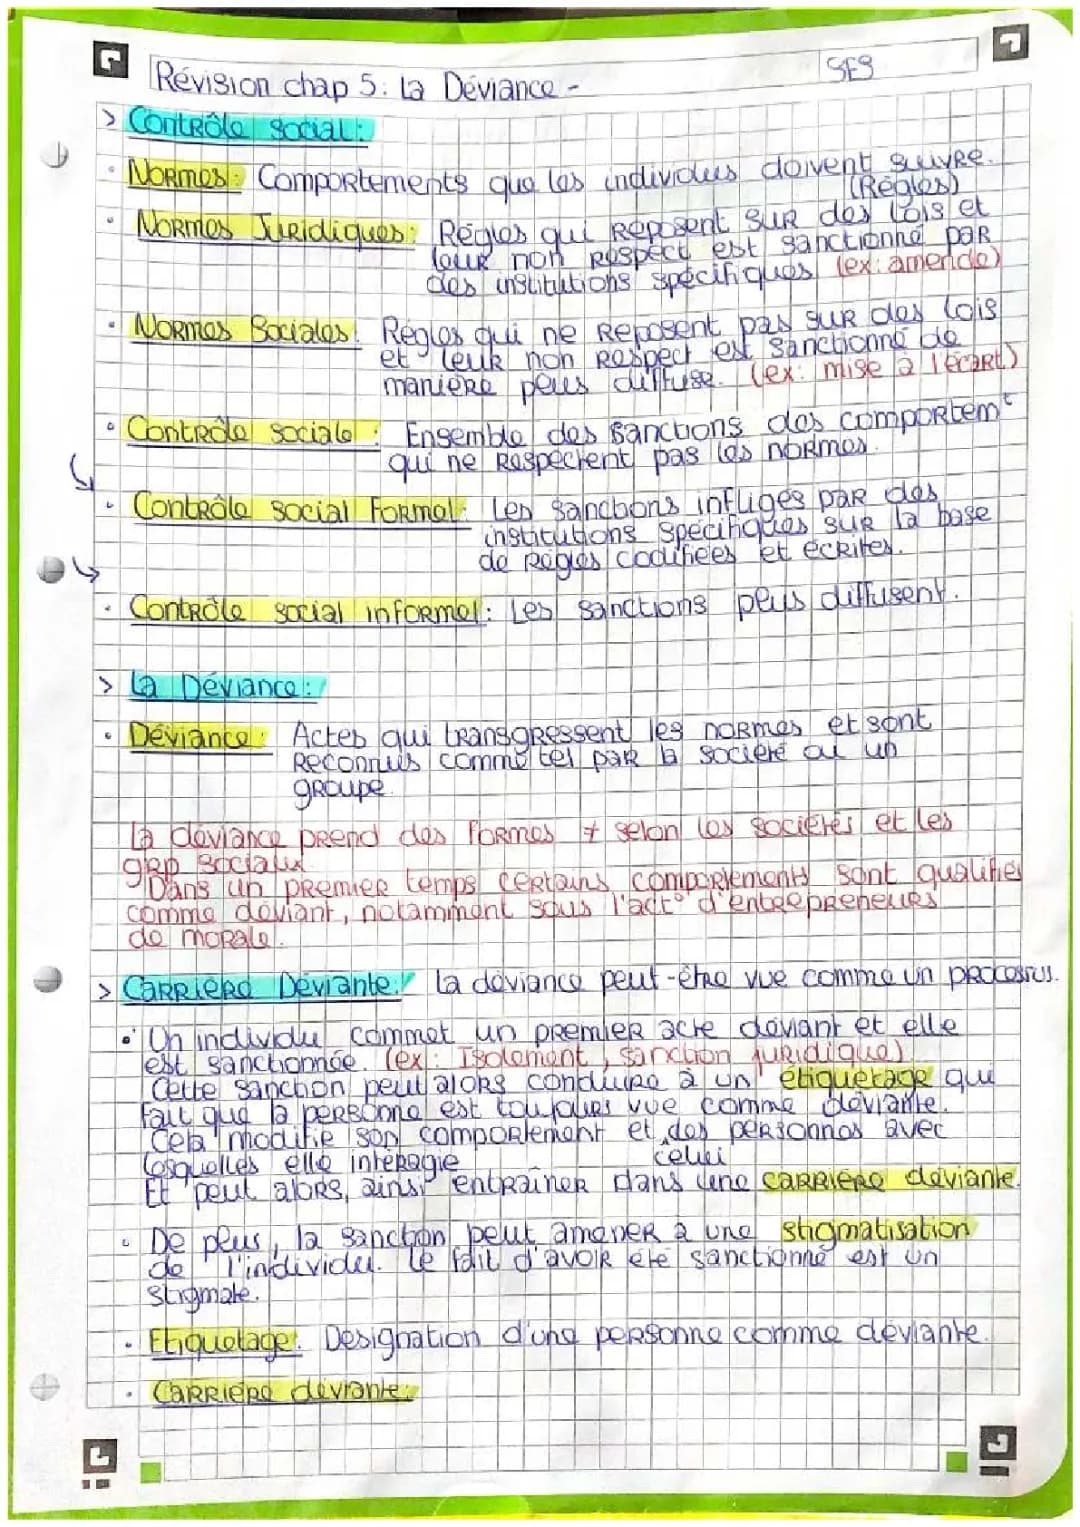 Révision chap 5: La Déviance -
SES
> Contrôle social:
• Normes: Comportements que les individus doivent suivre.
(Règles)
• Normes Juridiques: Règles qui reposent sur des lois et
leur non respect est sanctionné par
des institutions spécifiques (ex: amende)
• Normes Sociales: Règles qui ne reposent pas sur des lois
et leur non respect est sanctionné de
manière plus diffuse. (ex: mise à l'écart)
• Contrôle sociale: Ensemble des sanctions des comportemt
qui ne respectent pas les normes.
• Contrôle social Formel: Les sanctions infligés par des
institutions spécifiques sur la base
de règles codifiées et écrites.
• Contrôle social informel: Les sanctions plus diffusent.
> La Déviance:
• Déviance: Actes qui transgressent les normes et sont
reconnus comme tel par la société ou un
groupe.
La déviance prend des formes ≠ selon les sociétés et les
grp sociaux.
Dans un premier temps certains comportements sont qualifiés
comme déviant, notamment sous l'act° d'entrepreneurs
de morale.
> Carrière Déviante: La déviance peut-être vue comme un processus.
• Un individu commet un premier acte déviant et elle
est sanctionnée. (ex: Isolement, sanction juridique)
Cette sanction peut alors conduire à un étiquetage qui
fait que la personne est toujours vue comme déviante.
Cela modifie son comportement et des personnes avec
lesquelles elle interagie celui
Et peut alors, ainsi entraîner dans une carrière déviante.
• De plus, la sanction peut amener à une stigmatisation
de l'individu. Le fait d'avoir été sanctionné est un
stigmate.
• Etiquetage: Désignation d'une personne comme déviante.
• Carrière déviante: